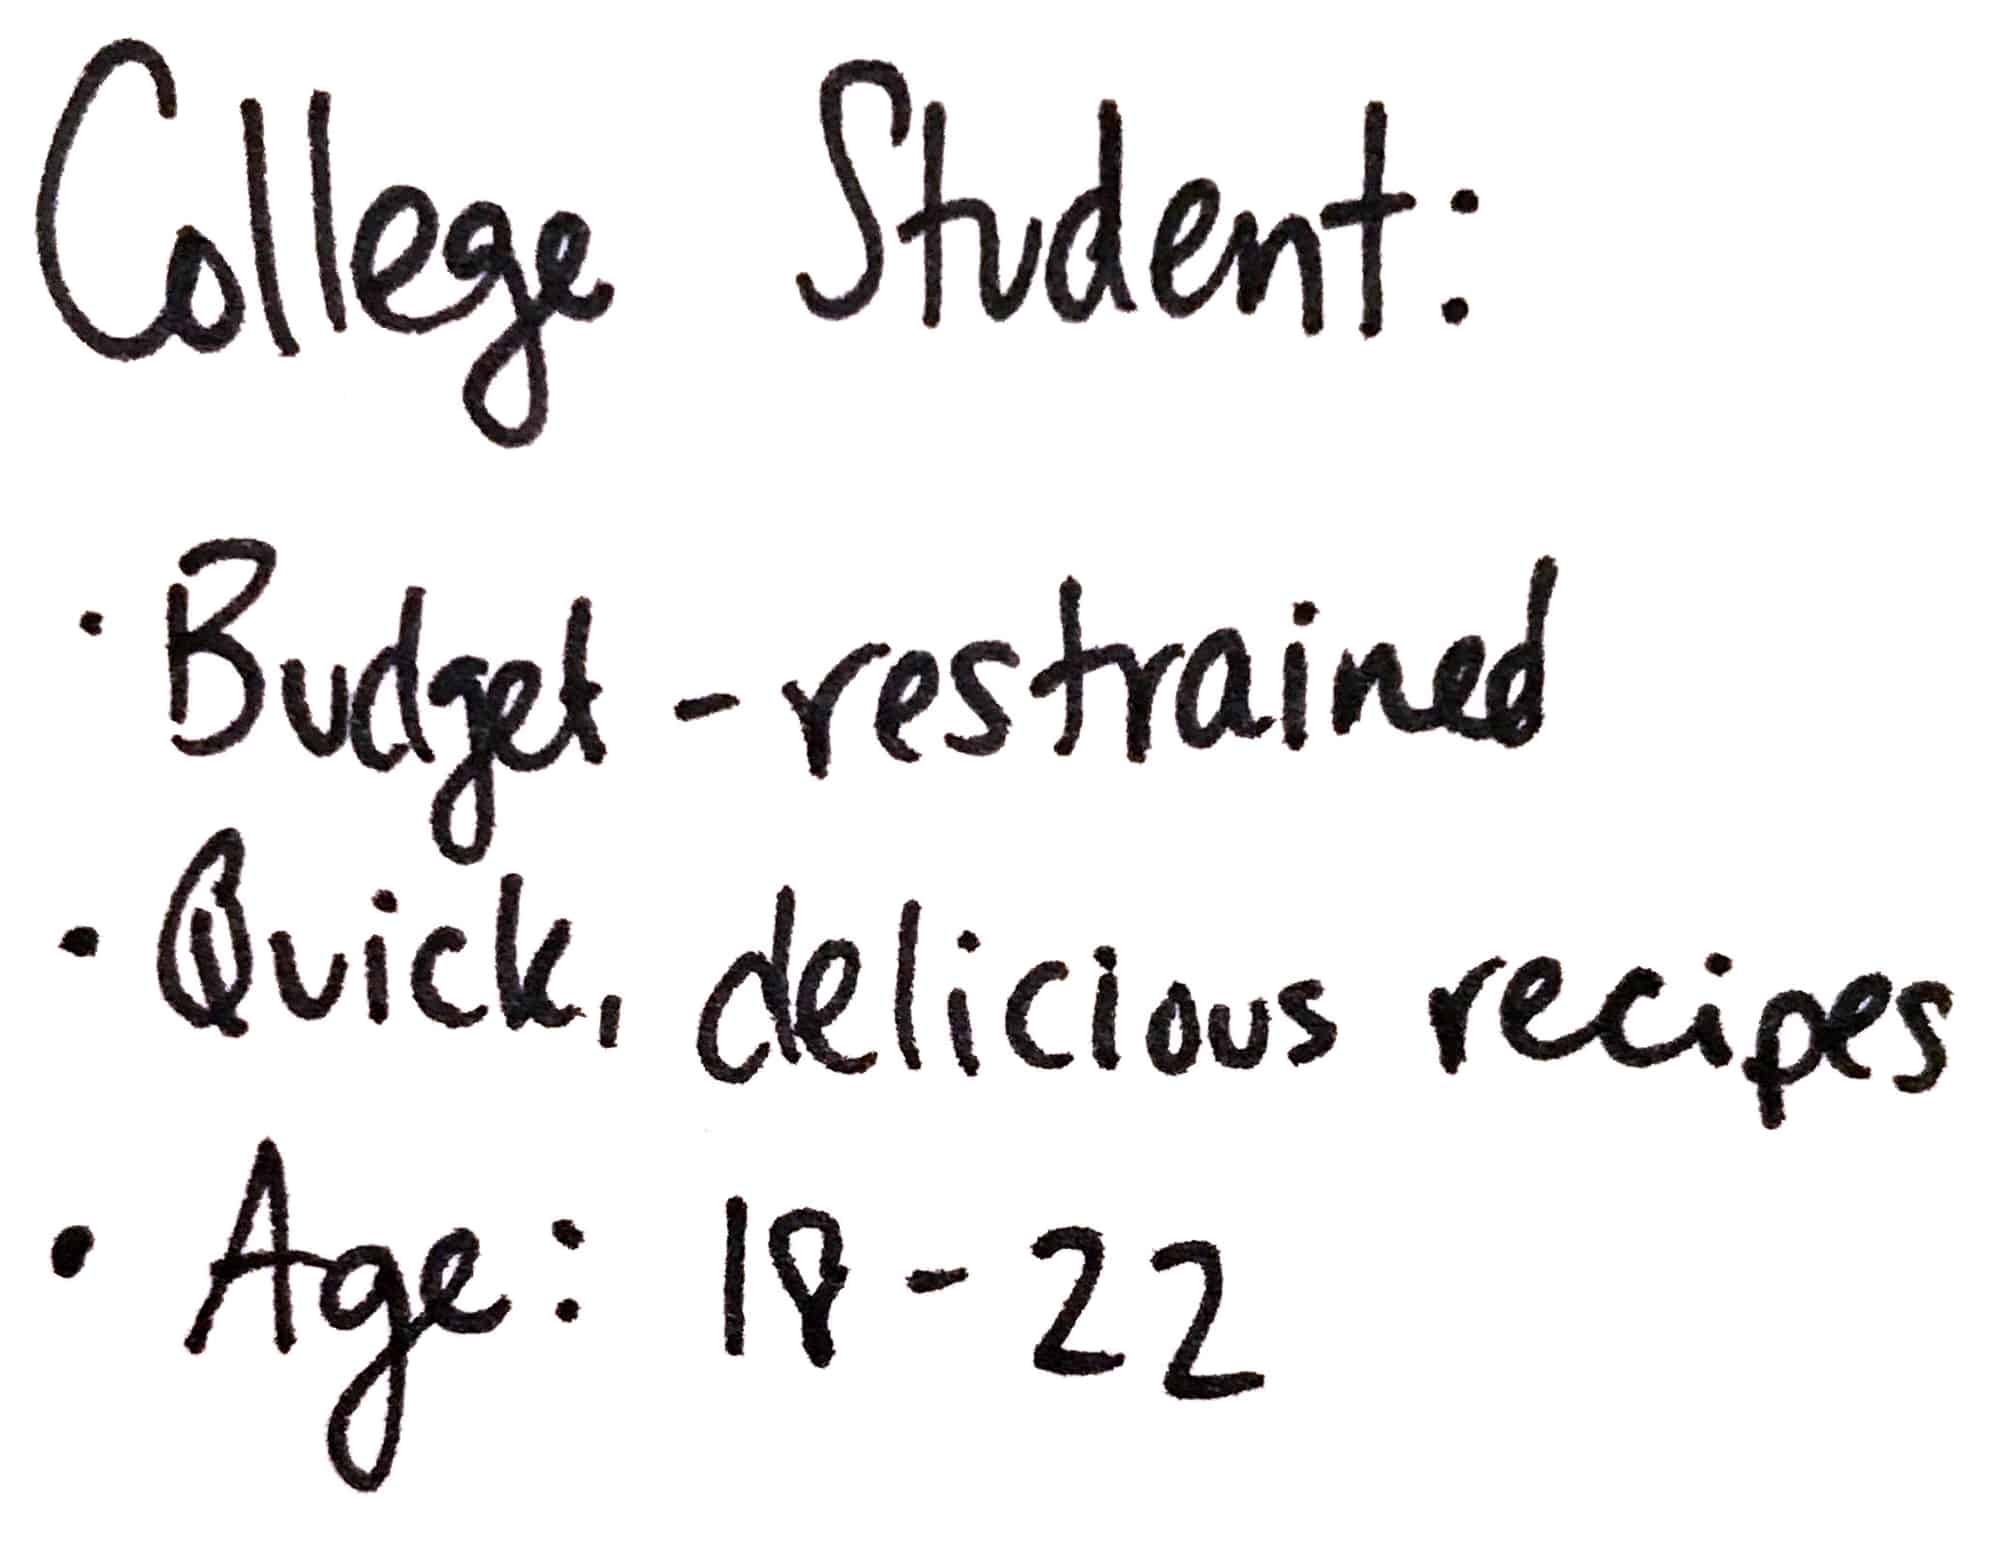 College Student:
· Budget-restrained
· Quick, delicious recipes
· Age: 18-22